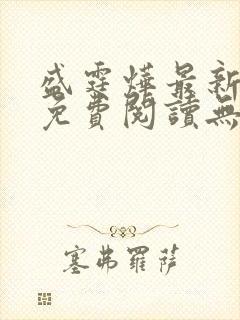 盛霆燁最新
免費閱讀無
塞弗羅薩